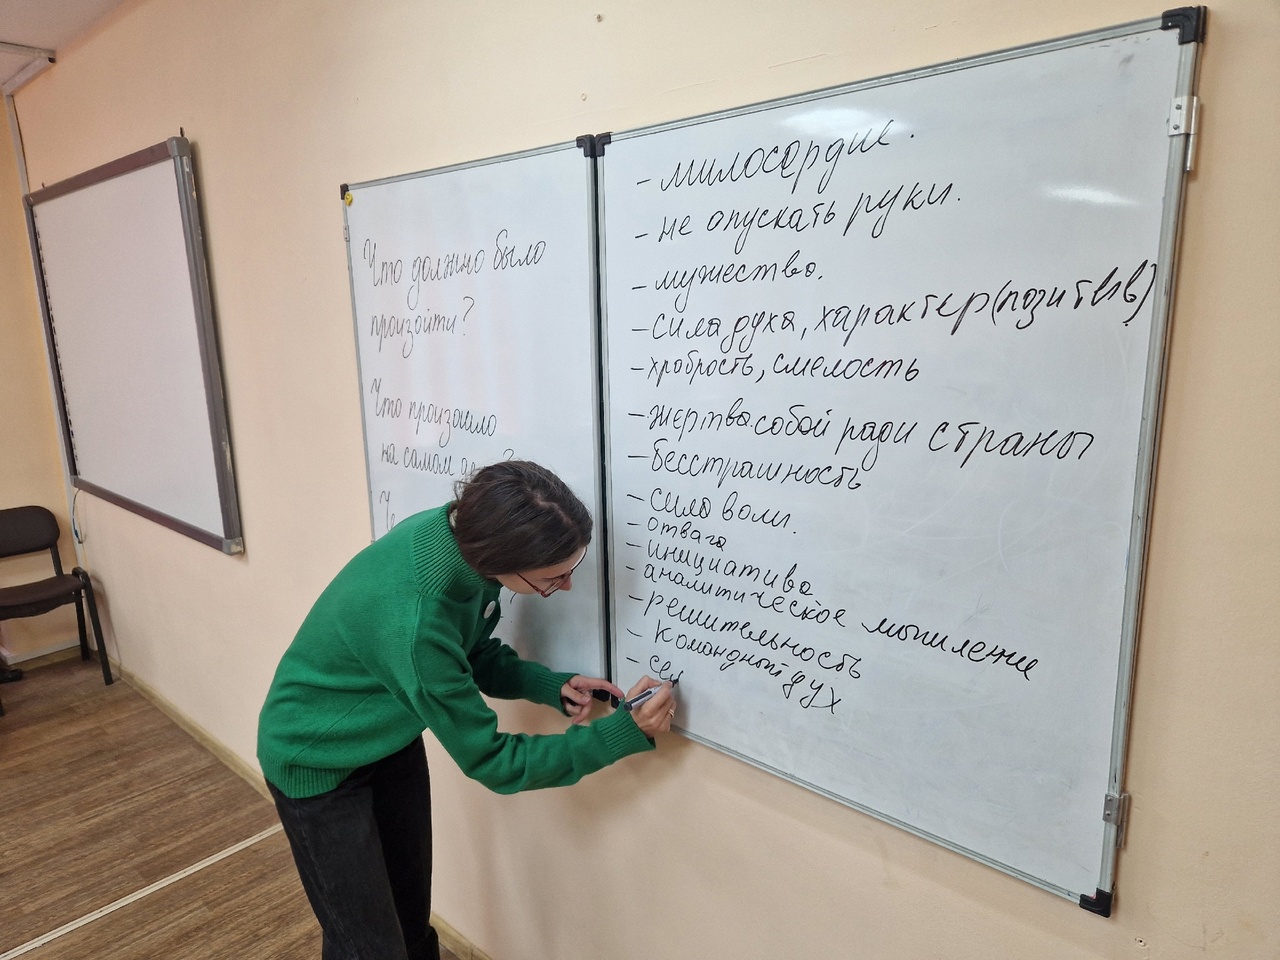 Что должно было
произойти?
Что произошло
на самом
- милосердие.
- не опускать руки.
- мужество.
- сила духа, характер (позитив)
- храбрость, смелость
- жертва собой ради страны
- бесстрашность
- сила воли.
- отвага
- инициатива
- аналитическое мышление
- решительность
- командный дух